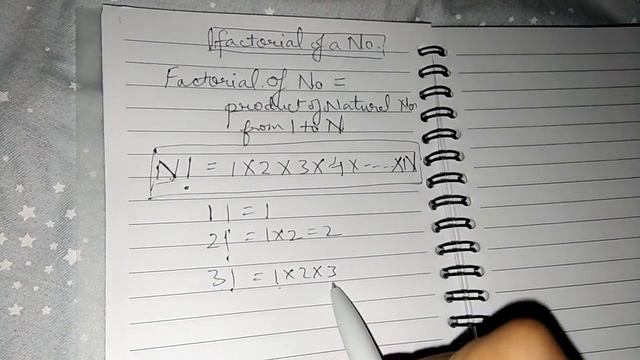 factorial of a No.
Factorial of No =
product of Natural No
from 1 to N
N! = 1 x 2 x 3 x 4 x ---- x N
1! = 1
2! = 1 x 2 = 2
3! = 1 x 2 x 3